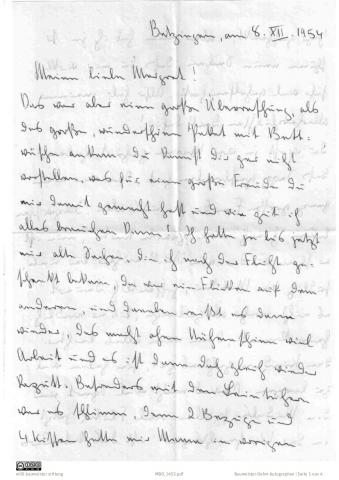 Betzingen, am 8. XII. 1954
Meine liebe Margret!
Das war aber eine große Überraschung, als
das große, wunderschöne Paket mit Bett=
wäsche ankam. Du kannst dir gar nicht
vorstellen, was für eine große Freude du
mir damit gemacht hast und wie gut ich
alles brauchen kann! Ich hatte ja bis jetzt
nur alte Sachen, die ich nach der Flucht ge=
schenkt bekam, da war ein Flicken auf dem
anderen, und daneben reißt es dann
wieder, das macht ohne Nähmaschine viel
Arbeit und es ist dann doch gleich wieder
kaputt. Besonders mit den Leintüchern
war es schlimm, denn 2 Bezüge und
4 Kissen hatte mir Mama im vorigen
willi baumeister stiftung
Baumeister-Dehm Autographen | Seite 1 von 4